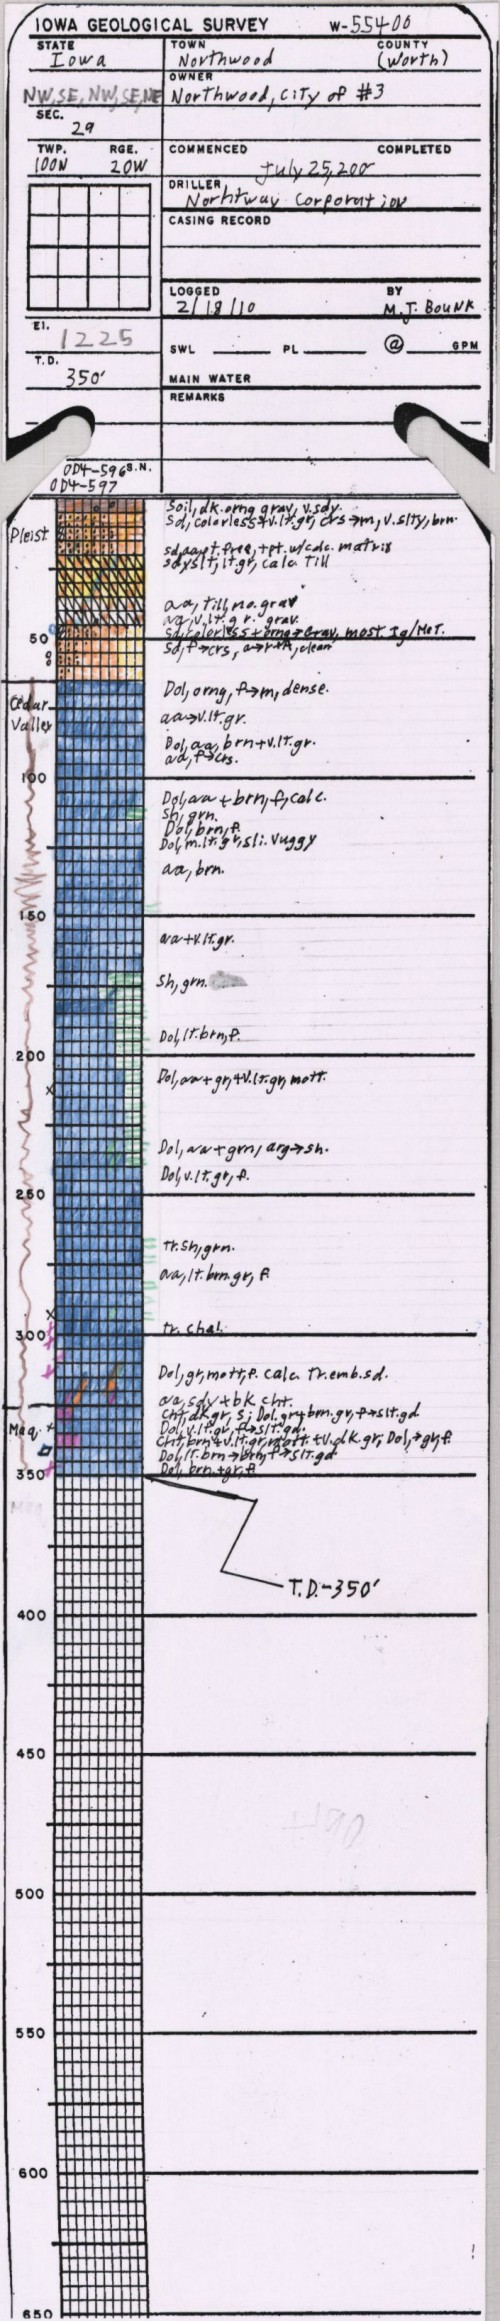 IOWA GEOLOGICAL SURVEY W-55400
STATE
Iowa
TOWN
Northwood
COUNTY
(Worth)
NW, SE, NW, SE, NE
OWNER
Northwood, City of #3
SEC.
29
TWP. RGE.
100N 20W
COMMENCED COMPLETED
July 25, 200
DRILLER
Northway Corporation
CASING RECORD
LOGGED BY
2/18/10 M.J. Bounk
El.
1225
SWL PL @ GPM
T.D.
350'
MAIN WATER
REMARKS
OD4-596 S.N.
OD4-597
Soil, dk. orng grav, v. sdy
Sd, colorless + v. lt. gr, crs → m, v. slty, brn.
Pleist.
sd, aa, pt. free, + pt. w/calc. matrix
sdy slt, lt. gr, calc Till
aa, Till, no. grav
aa, v. lt. gr. grav.
50
Sd, colorless + orng → Grav, most Ig/Met.
Sd, f → crs, clean
Dol, orng, f → m, dense.
Cedar
Valley
aa → v. lt. gr.
Dol, aa, brn + v. lt. gr.
aa, f → crs.
100
Dol, aa + brn, f, calc.
Sh, grn.
Dol, brn, f.
Dol, m. lt. gr, sli. vuggy
aa, brn.
150
aa + v. lt. gr.
Sh, grn.
Dol, lt. brn, f.
200
Dol, aa + gr, + v. lt. gr, mott.
Dol, aa + grn, arg → sh.
Dol, v. lt. gr, f.
250
Tr. Sh, grn.
aa, lt. brn. gr, f.
300
tr. chal.
Dol, gr, mott, f. calc. Tr. emb. sd.
aa, sdy + bk cht.
Cht, dk gr, s; Dol. gr + brn. gr, f → slt. gd.
Maq.
Dol, v. lt. gr, f → slt. gd.
Cht, brn + v. lt. gr, mott. + v. dk. gr, Dol, → gr, f.
Dol, lt. brn → brn, f → slt. gd
350
Dol, brn. + gr, f.
T.D.-350'
400
450
500
550
600
650